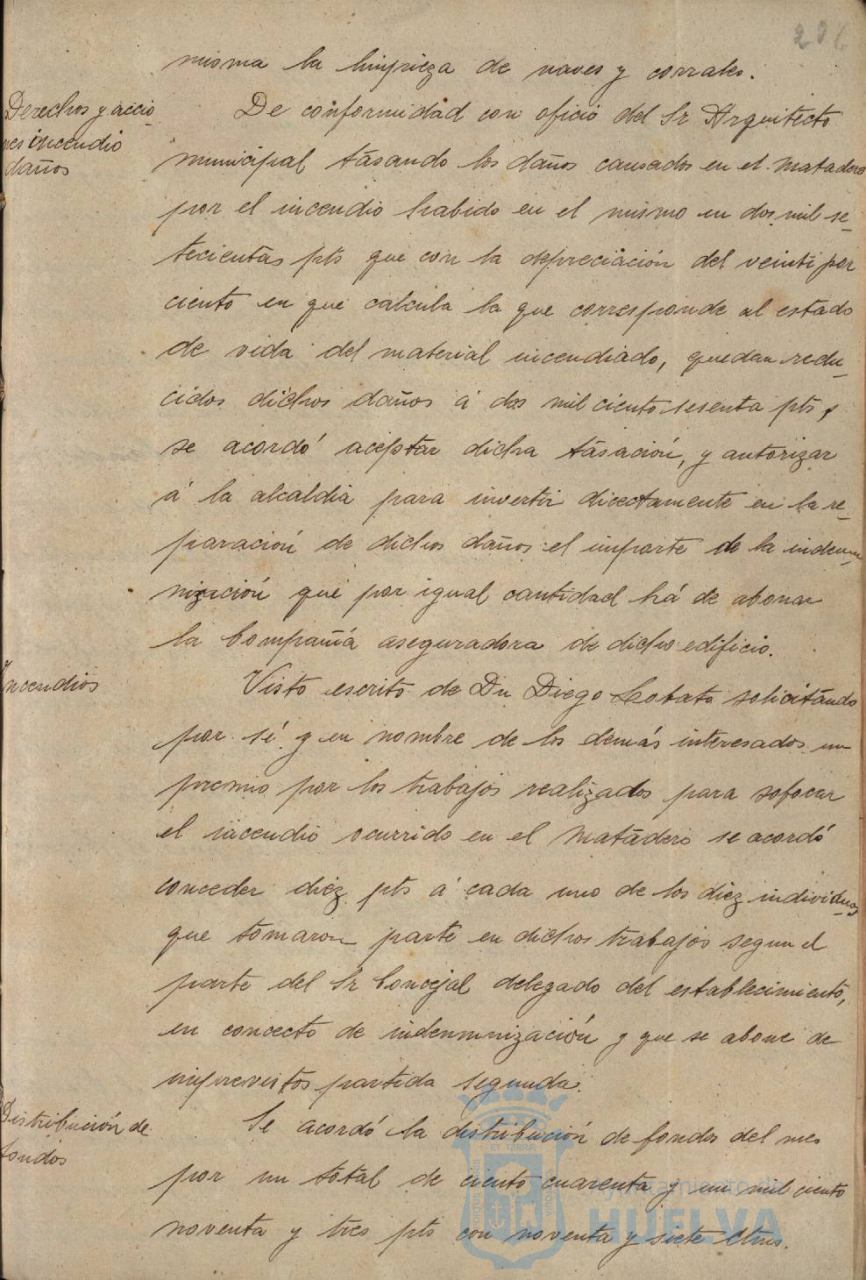 296
misma la limpieza de naves y corrales.
Derechos y accio-
nes incendio
daños
De conformidad con oficio del Sr Arquitecto
municipal tasando los daños causados en el matadero
por el incendio habido en el mismo en dos mil se-
tecientas pts que con la depreciación del veinti por
ciento en que calcula la que corresponde al estado
de vida del material incendiado, quedan redu-
cidos dichos daños á dos mil ciento sesenta pts,
se acordó aceptar dicha tasación, y autorizar
á la alcaldia para invertir directamente en la re-
paración de dichos daños el importe de la indem-
nización que por igual cantidad há de abonar
la Compañia aseguradora de dicho edificio.
Incendios
Visto escrito de Dn Diego Lobato solicitando
por sí y en nombre de los demás interesados un
premio por los trabajos realizados para sofocar
el incendio ocurrido en el matadero se acordó
conceder diez pts á cada uno de los diez individuos
que tomaron parte en dichos trabajos segun el
parte del Sr Concejal delegado del establecimiento,
en concecto de indemnización y que se abone de
imprevistos partida segunda.
Distribución de
fondos
Se acordó la distribución de fondos del mes
por un total de ciento cuarenta y un mil ciento
noventa y tres pts con noventa y siete ctms.
Ayuntamiento de
HUELVA